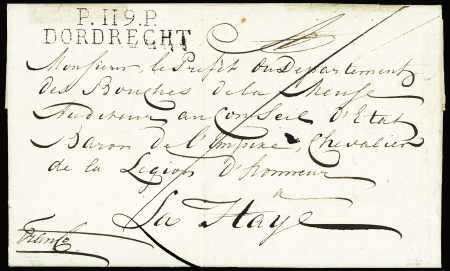 P.119.P.
DORDRECHT
Monsieur le Préfet du Département
des Bouches de la Meuse
Auditeur au Conseil d'Etat
Baron de l'Empire, Chevalier
de la Légion d'honneur
a
La Haye
Franco